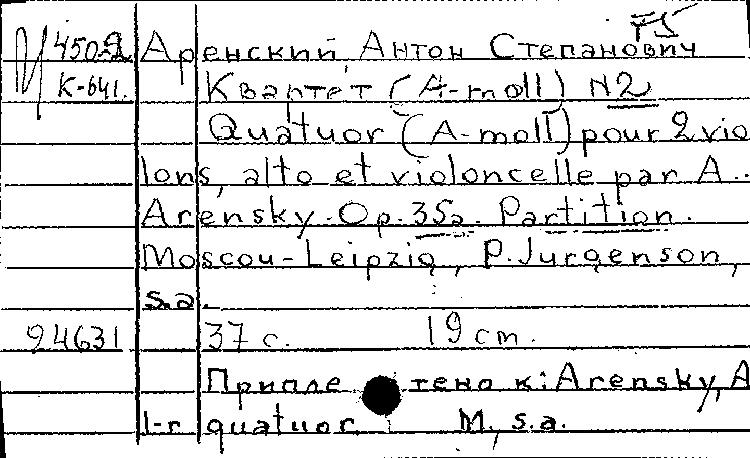 F5
И 450a Аренский, Антон Степанович
К-641. Квартет (A-moll) N2
Quatuor (A-moll) pour 2 vio
lons, alto et violoncelle par A.
Arensky. Op. 35a. Partition.
Moscou-Leipzig, P. Jurgenson,
s.a.
24631 37 с. 19 cm.
Припле тено к: Arensky, A
1-r quatuor M, s.a.